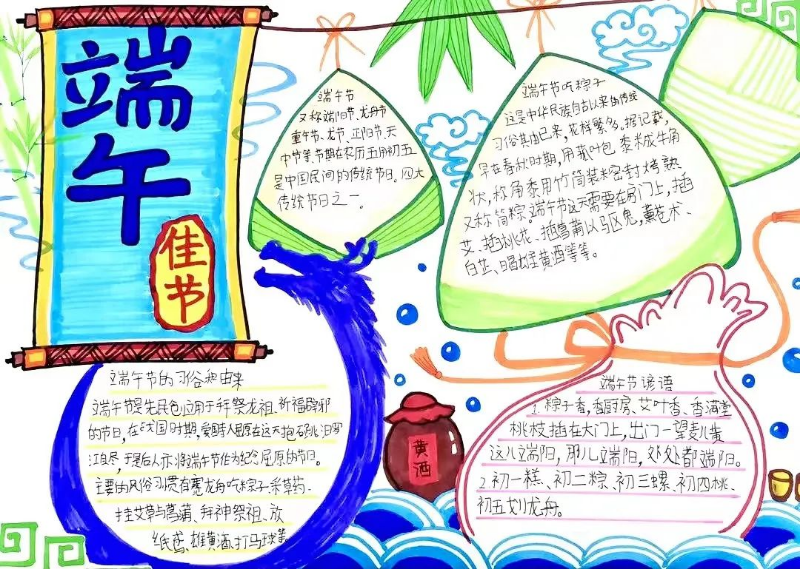 端午
佳节
端午节
又称端阳节、龙舟节
重午节、龙节、正阳节、天
中节等节期在农历五月初五
是中国民间的传统节日。四大
传统节日之一。
端午节吃粽子
这是中华民族自古以来的传统
习俗其由已来,花样繁多。据记载,
早在春秋时期,用菰叶包黍米成牛角
状,称角黍用竹筒装米密封烤熟
又称筒粽。端午节这天需要在房门上,插
艾、插桃花、插菖蒲以驱鬼,薰苍术、
白芷、喝雄黄酒等等。
端午节的习俗和由来
端午节是先民创应用于拜祭龙祖、祈福辟邪
的节日,在战国时期,爱国诗人屈原在这天抱石跳汨罗
江自尽,于是后人亦将端午节作为纪念屈原的节日。
主要的风俗习惯有赛龙舟吃粽子、采草药、
挂艾草与菖蒲、拜神祭祖、放
纸鸢、雄黄酒、打马球等
黄酒
端午节谚语
1.粽子香,香厨房、艾叶香、香满堂
桃枝插在大门上,出门一望麦儿黄
这儿端阳,那儿端阳,处处都端阳。
2.初一糕、初二粽、初三螺、初四桃、
初五划龙舟。